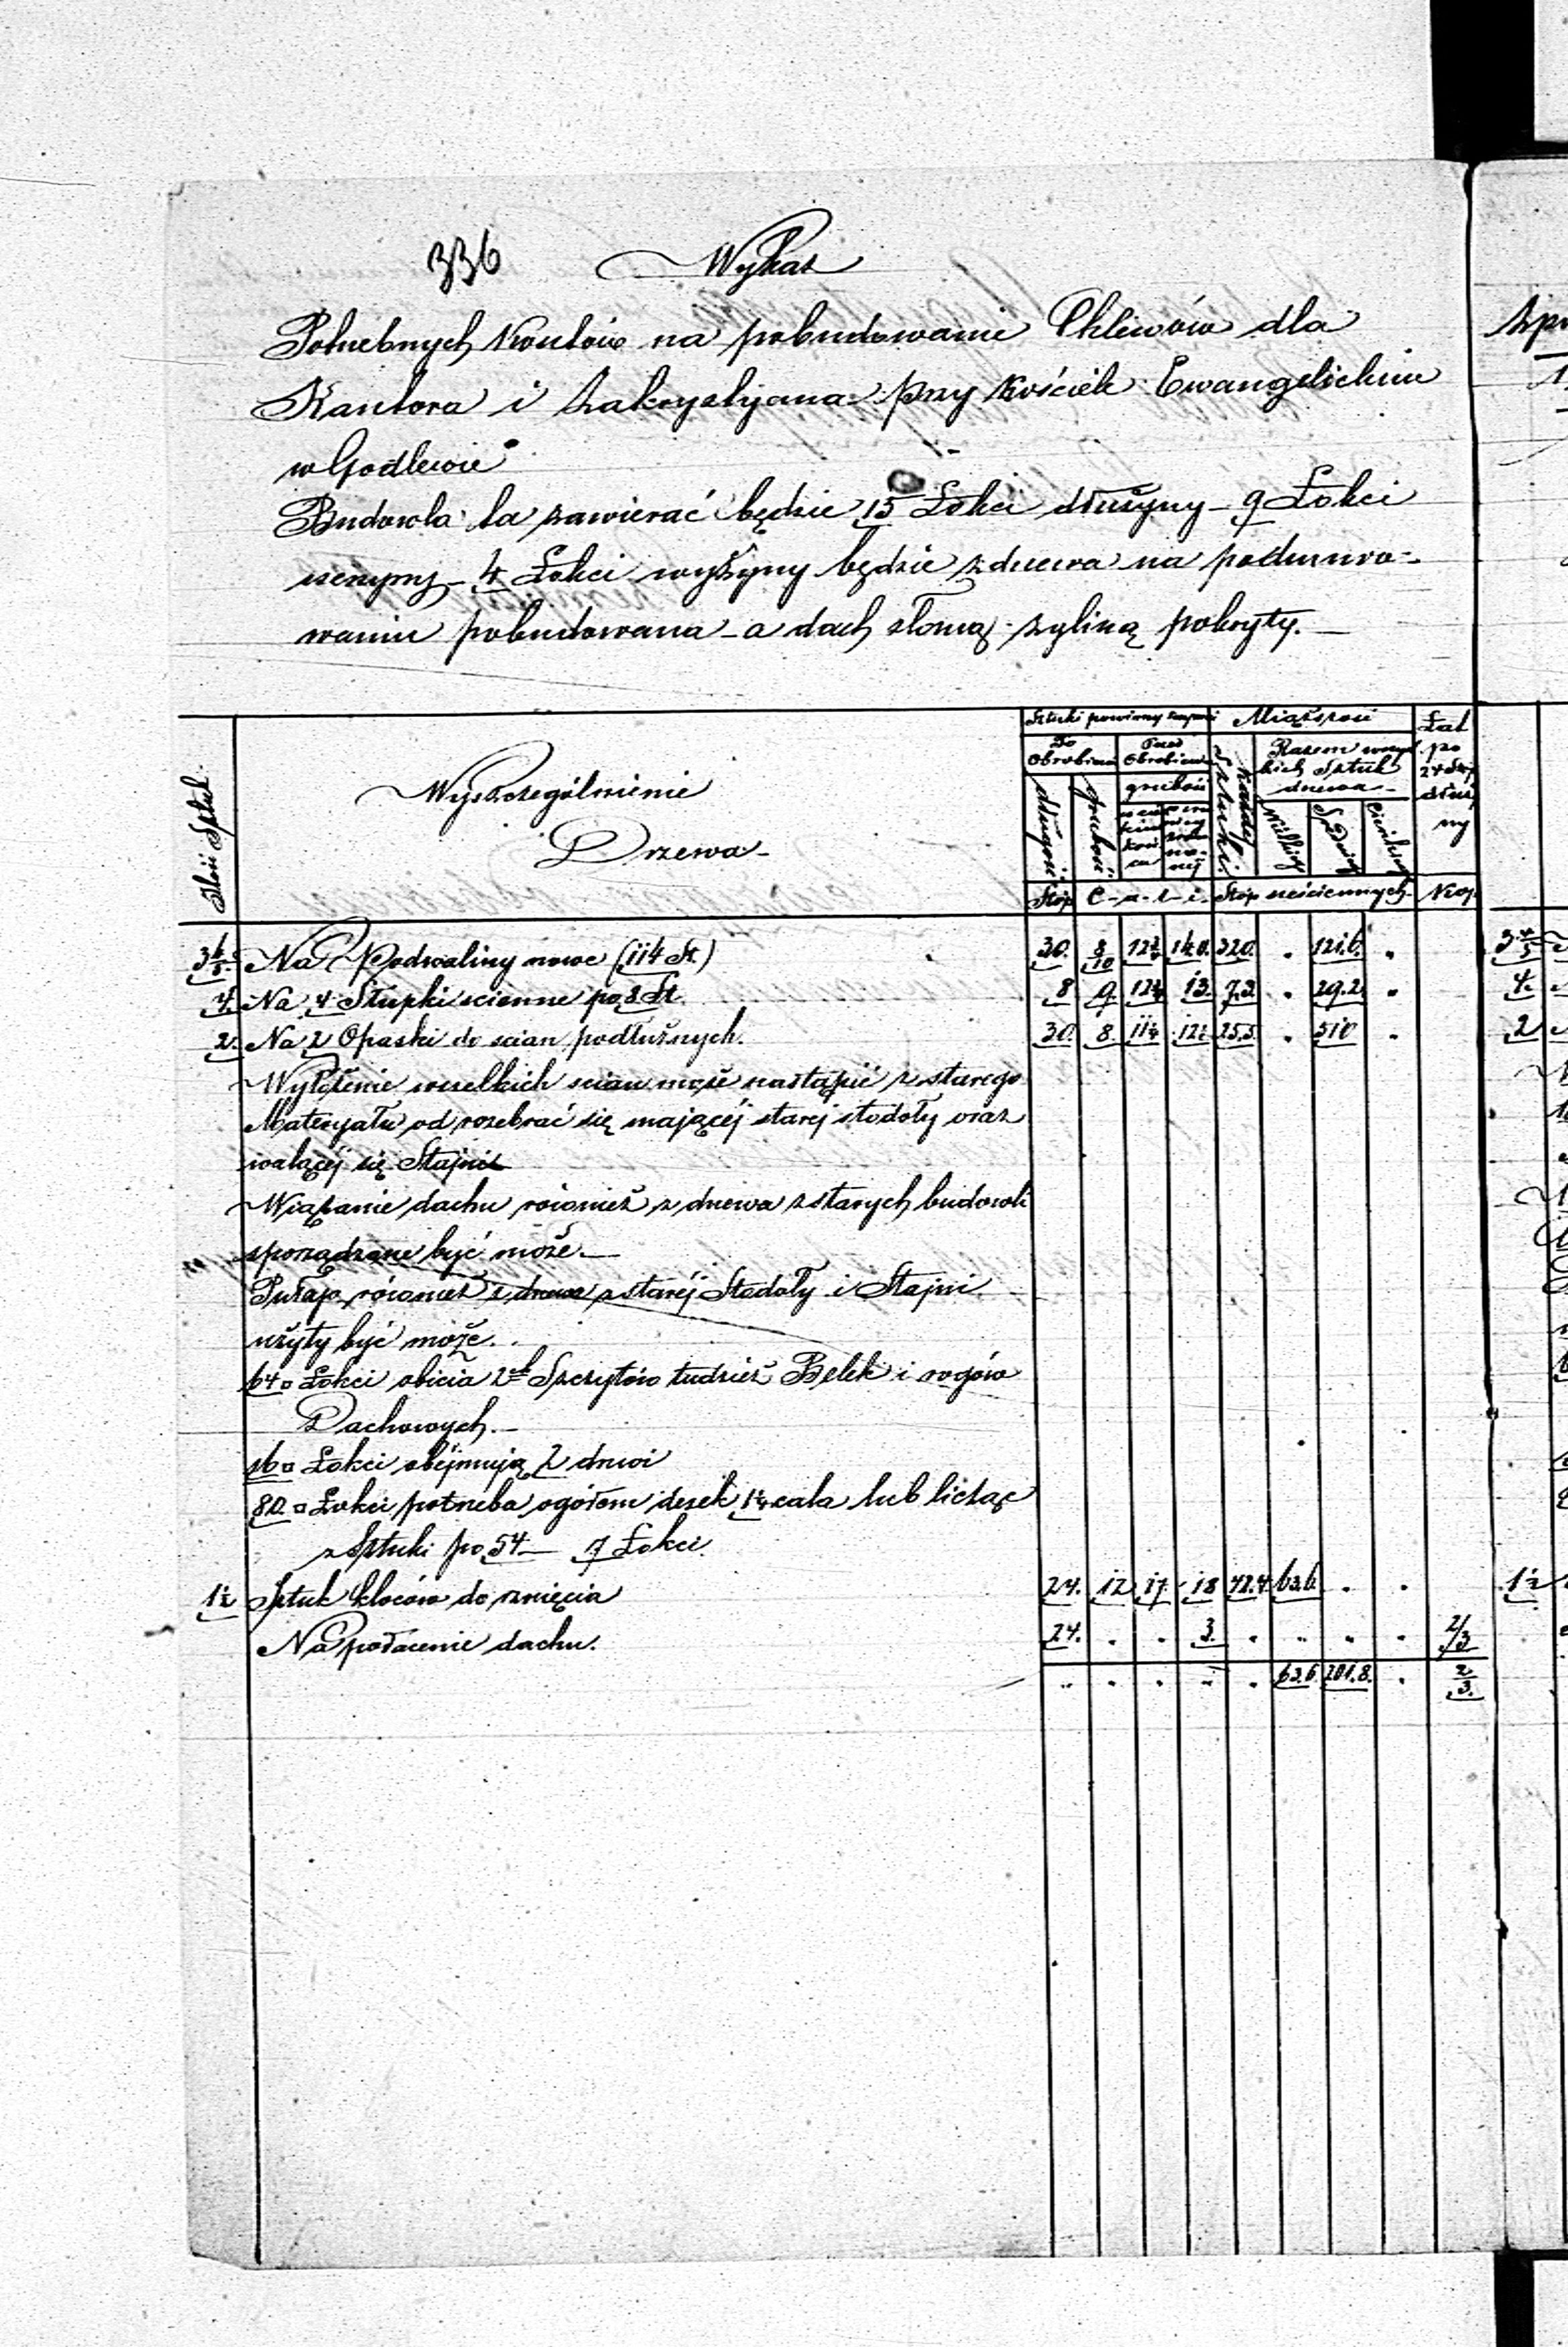 336
Wykaz
Potrzebnych Kosztów na pobudowanie Chlewów dla
Kantora i Zakrystyjana przy Kościele Ewangelickim
w Godlewie
Budowla ta zawierać będzie 15 Łokci dłużyny - 9 Łokci
szerzyny - 4 Łokci wyżyny będzie z drzewa na podmuro-
waniu pobudowana - a dach słomą z gliną pokryty. -
Ilość Sztuk.
Wyszczególnienie
Drzewa -
Sztuki powinny
Do Obrobienia
Przed Obrobieniem
długość.
grubość.
grubość
Miąższości
Każdej Sztuki.
Razem wszyst
kich Sztuk
drzewa -
wielkiej
Średniej
cienkiej
Łat
po
24 Stóp
dłuż
ny
Stóp C - a - l - i - Stóp sześciennych. Kop.
3 4/5 Na Podwaliny nowe (114 St.) 30. 8/10 12 3/4 14.0. 320. " 121.6. "
4. Na 4 Słupki scienne po 8 St. 8 9. 12 1/4 13. 7.3 " 29.2 "
2. Na 2 Opaski do scian podłużnych. 30. 8. 11 1/4 12 1/2 25.5. " 510 "
Wypełnienie wszelkich scian może nastąpić z starego
Materyału od rozebrać się mającéj starej stodoły oraz
walącéj się Stajni
Wiązanie dachu również z drzewa z starych budowli
sporządzone być może. -
Pułap również z drzewa z staréj Stodoły i Stajni
użyty być może.
64 □ Łokci obicia 2ch Szczytów tudzież Belek i rogów
Dachowych. -
16 □ Łokci obéjmują 2 drzwi
80 □ Łokci potrzeba ogółem desek 1 1/4 cala lub licząc
z Sztuki po 54 - 7 Łokci.
1 1/2 Sztuk kloców do rznięcia 24. 12 17 18 42.4 63.6. " "
Na połacenie dachu. 24. " " 3. " " " " 2/3
" " " " " 63.6 201.8. " 2/3.